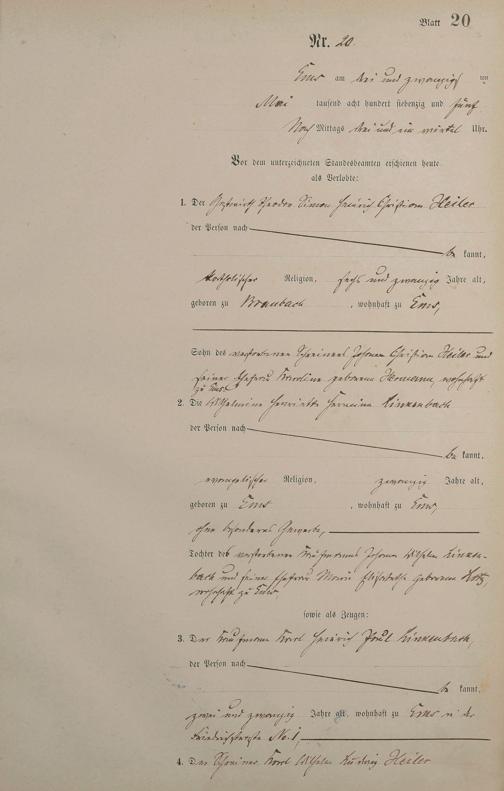 Blatt 20
Nr. 20.
Ems am drei und zwanzigsten
Mai tausend acht hundert siebenzig und fünf
Nach Mittags drei und ein viertel Uhr.
Vor dem unterzeichneten Standesbeamten erschienen heute
als Verlobte:
1. Der Theodor Simon Heinrich Christian Heiler
der Person nach
be kannt,
katholischer Religion, sechs und zwanzig Jahre alt,
geboren zu Braubach, wohnhaft zu Ems,
Sohn des verstorbenen Schreiners Johann Christian Heiler und
seiner Ehefrau Karoline geborene Hermann, wohnhaft
zu Ems.
2. Die Wilhelmine Henriette Hermine Linkenbach
der Person nach
be kannt,
evangelischer Religion, zwanzig Jahre alt,
geboren zu Ems, wohnhaft zu Ems,
ohne besonderes Gewerbe,
Tochter des verstorbenen Kaufmanns Johann Wilhelm Linken-
bach und seiner Ehefrau Marie Elisabethe geborene
wohnhaft zu Ems
sowie als Zeugen:
3. Der Kaufmann Karl Heinrich Paul Linkenbach,
der Person nach
be kannt,
zwei und zwanzig Jahre alt, wohnhaft zu Ems in der
Friedrichstraße No. 1,
4. Der Schreiner Karl Wilhelm Ludwig Heiler